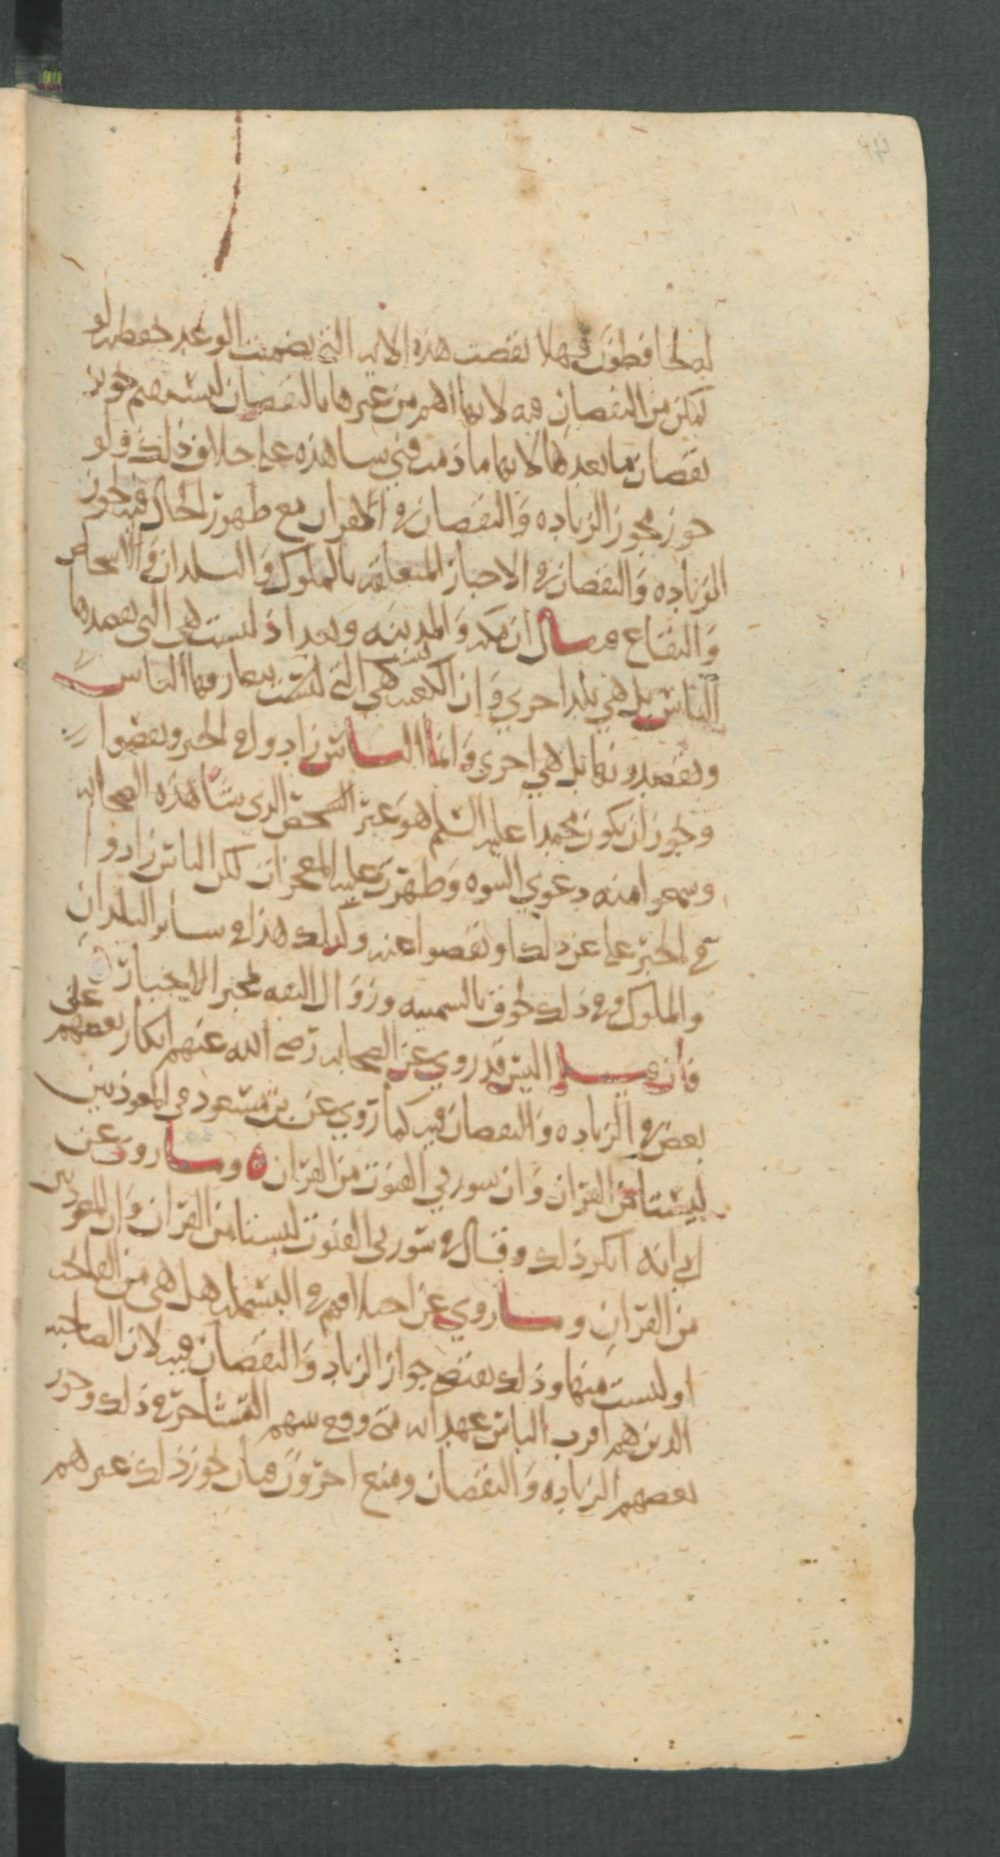 له لحافظون فهلا نقصت هذه الاية التي تضمنت الوعد بحفظه ولو
تمكن من النقصان فيه لانها اهم من غيرها بالنقصان ليتم لهم تجويز
نقصان ما بعدها لانها ما دمت فهي شاهدة على خلاف ذلك ولو
جوز مجوز الزيادة والنقصان في القران مع ظهور الحال فيه لجوز
الزيادة والنقصان في الاخبار المتعلقة بالملوك والبلدان والاشخاص
والبقاع فيقال ان مكة والمدينة وبغداد ليست هي التي يقصدها
الناس بل هي بلد اخرى وان الكعبة ليست هي التي يتعارفها الناس
ويقصدونها بل هي اخرى وانما الناس زادوا في الخبر ونقصوا
وجوز ان يكون محمدا عليه السلم هو غير الشخص الذي شاهده الصحابة
وسمعوا منه دعوى النبوة وظهرت عليه المعجزات لكن الناس زادوا
في الخبر على غير ذلك او نقصوا عنه وكذلك هذا في سائر البلدان
والملوك وفي ذلك لحوق بالسمنية وزوال الثقة بمخبر الاخبار
فان قيل اليس قد روي عن الصحابة رضي الله عنهم انكار بعضهم على
بعض في الزيادة والنقصان فيه كما روي عن بن مسعود في المعوذتين
ليستا من القران وان سورتي القنوت من القران ه وما روي عن
ابي انه انكر ذلك وقال في سورتي القنوت ليستا من القران وان المعوذتين
من القران وما روي عن اختلافهم في البسملة هل هي من الفاتحة
او ليست منها وذلك يقتضي جواز الزيادة والنقصان فيه لان الصحابة
الذين هم اقرب الناس عهدا به متى وقع بينهم التشاجر في ذلك وجوز
بعضهم الزيادة والنقصان ومنع اخرون فبان يجوز ذلك غيرهم